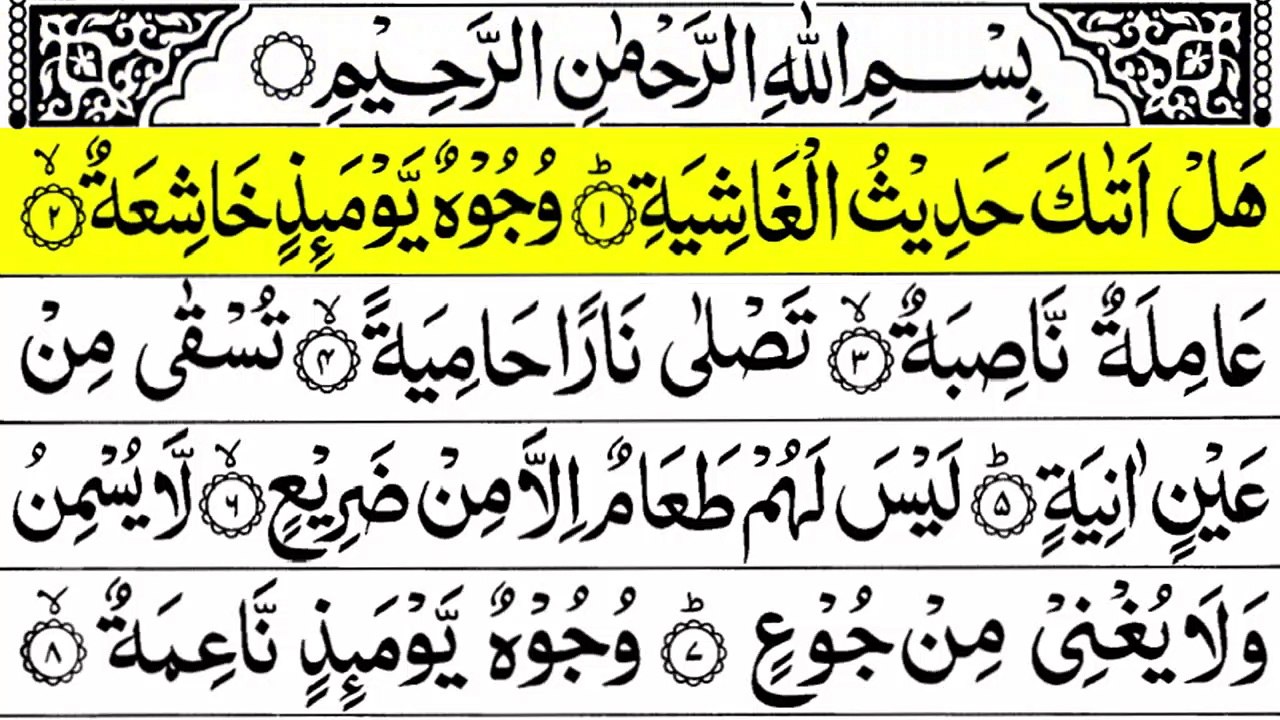 بِسْمِ اللّٰهِ الرَّحْمٰنِ الرَّحِيْمِ ○
هَلْ اَتٰىكَ حَدِيْثُ الْغَاشِيَةِ ؕ﴿۱﴾ وُجُوْهٌ يَّوْمَىِٕذٍ خَاشِعَةٌ ۙ﴿۲﴾
عَامِلَةٌ نَّاصِبَةٌ ۙ﴿۳﴾ تَصْلٰى نَارًا حَامِيَةً ۙ﴿۴﴾ تُسْقٰى مِنْ
عَيْنٍ اٰنِيَةٍ ؕ﴿۵﴾ لَيْسَ لَهُمْ طَعَامٌ اِلَّا مِنْ ضَرِيْعٍ ۙ﴿۶﴾ لَّا يُسْمِنُ
وَلَا يُغْنِىْ مِنْ جُوْعٍ ؕ﴿۷﴾ وُجُوْهٌ يَّوْمَىِٕذٍ نَّاعِمَةٌ ۙ﴿۸﴾